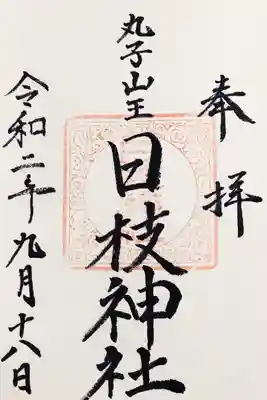 奉拝
丸子山王
日枝神社
令和二年九月十八日